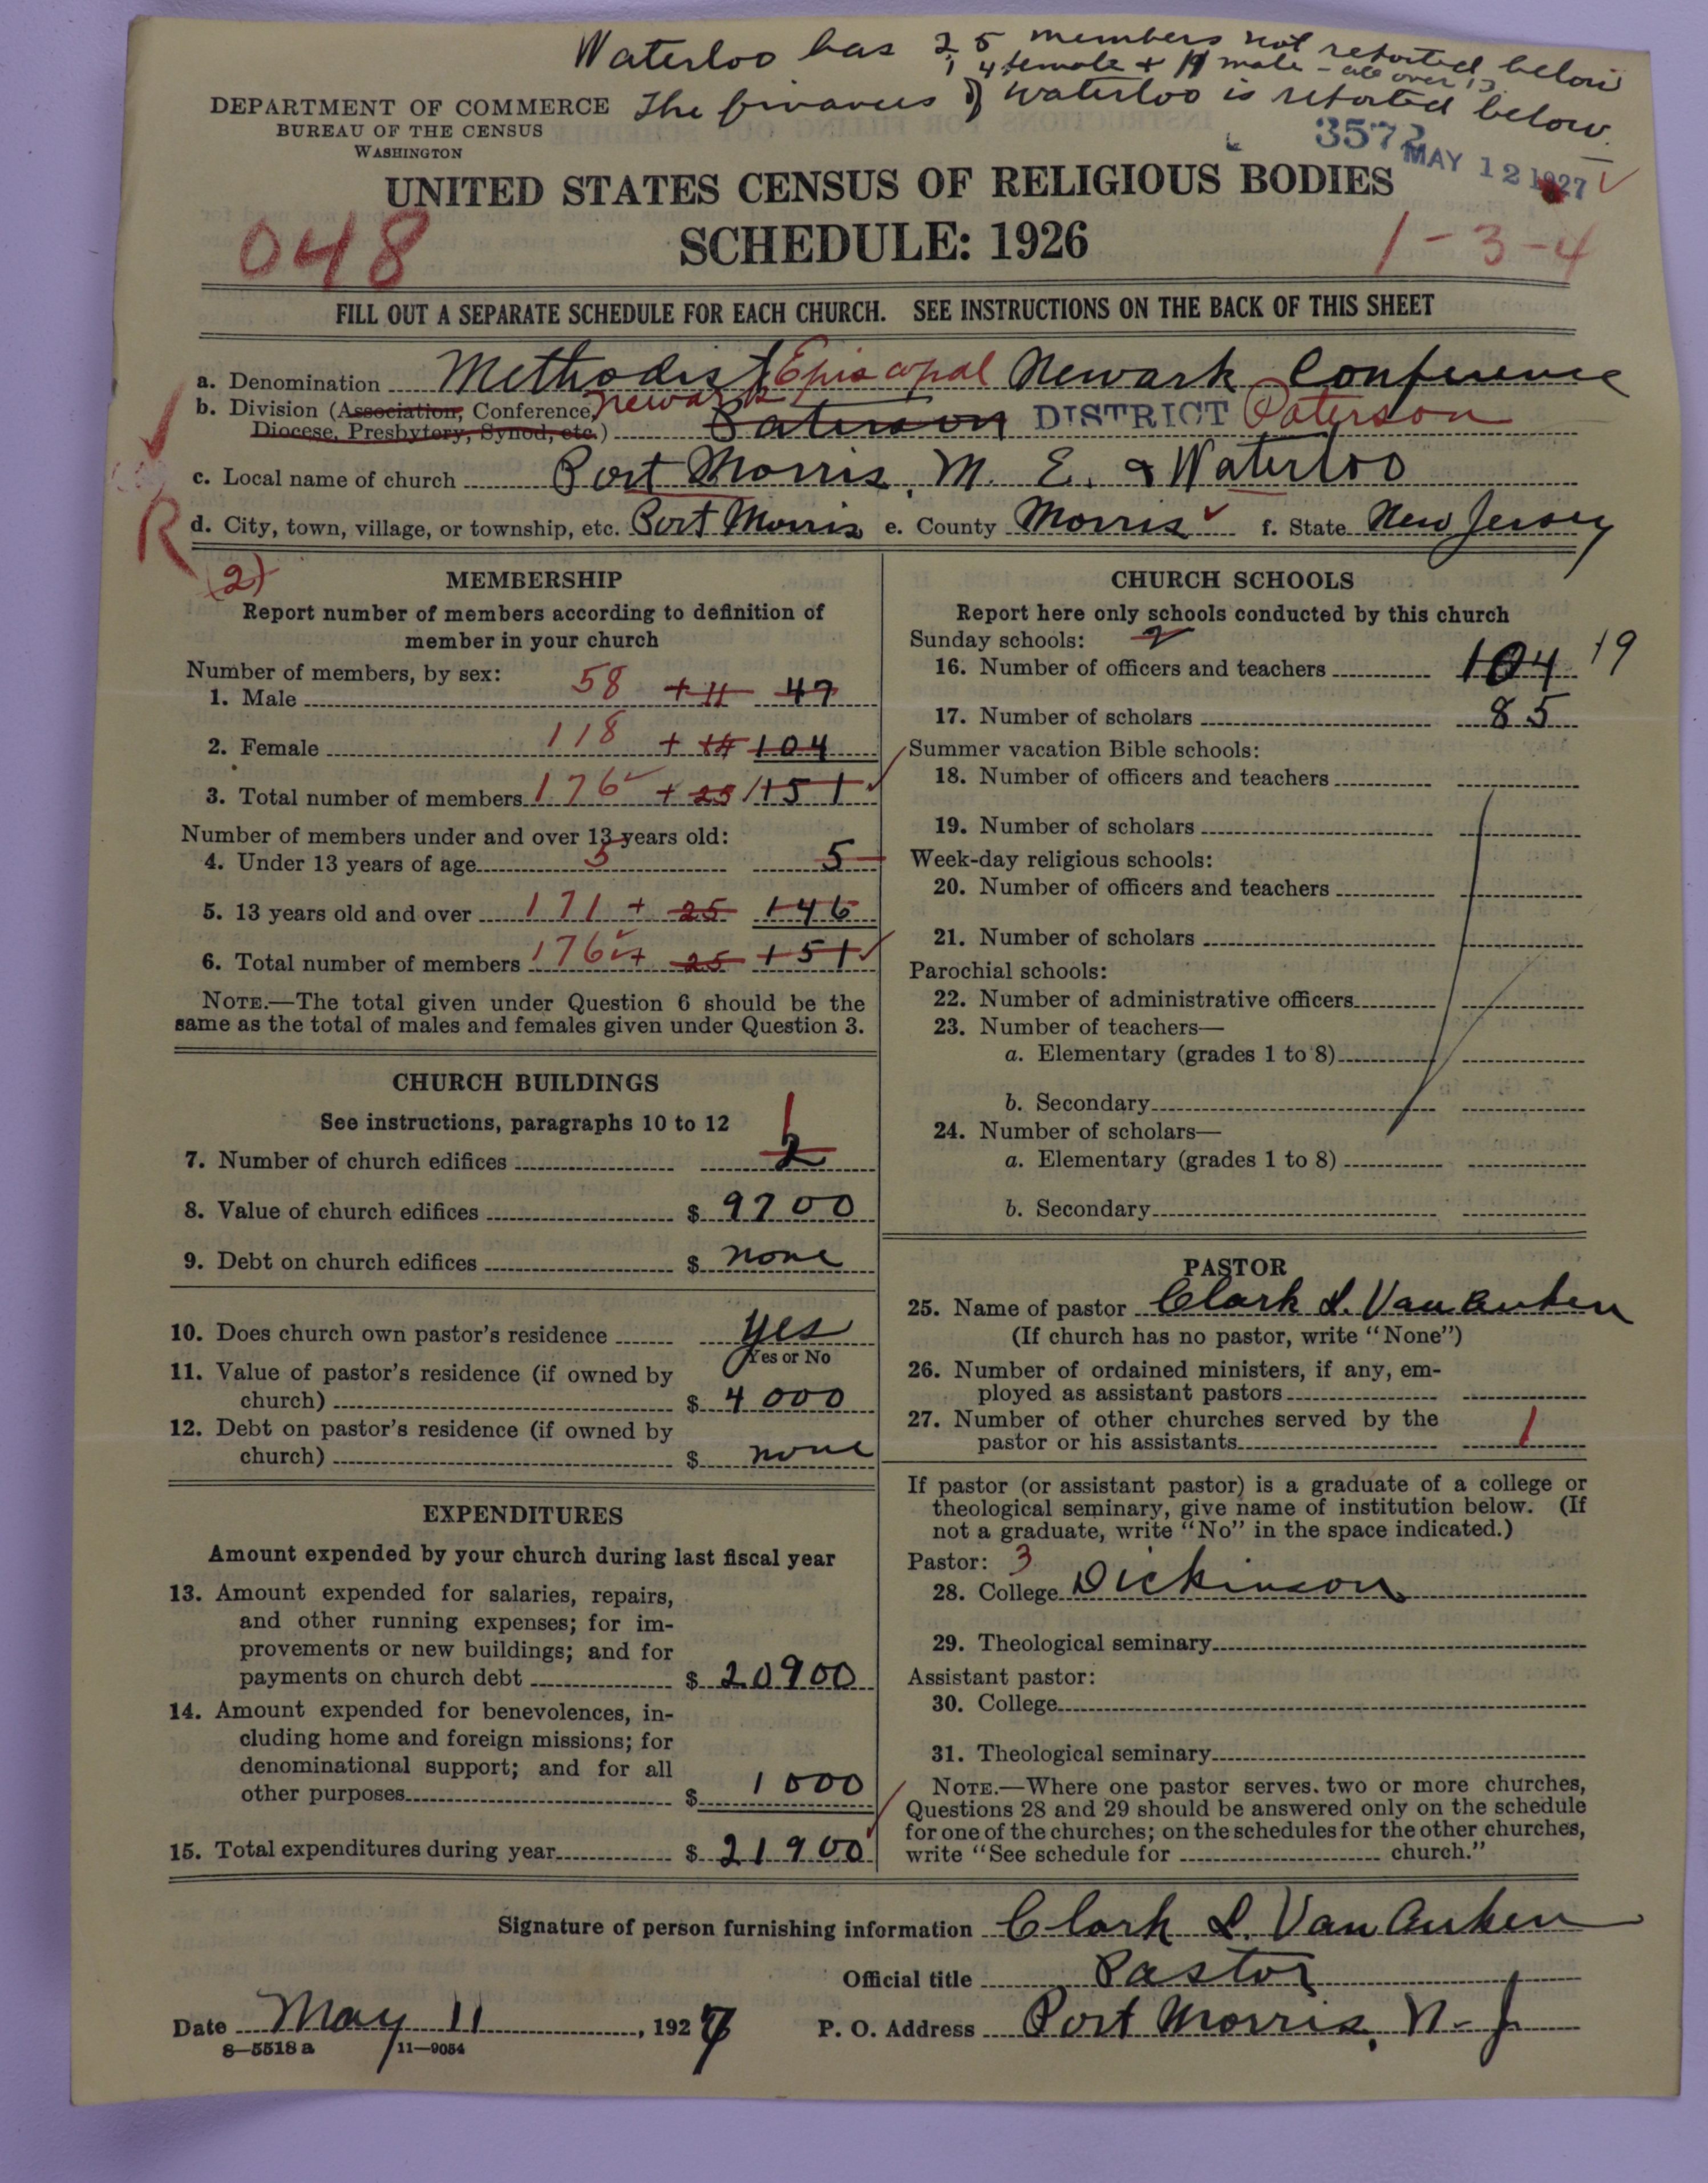 Waterloo has 25 members not reported below
14 female + 11 male - all over 13.
The finances of Waterloo is reported below.
DEPARTMENT OF COMMERCE
BUREAU OF THE CENSUS
WASHINGTON
3572
MAY 12 1927
UNITED STATES CENSUS OF RELIGIOUS BODIES
SCHEDULE: 1926
048
1-3-4
FILL OUT A SEPARATE SCHEDULE FOR EACH CHURCH. SEE INSTRUCTIONS ON THE BACK OF THIS SHEET
a. Denomination Methodist Episcopal Newark Conference
b. Division (Association, Conference, Newark
Diocese, Presbytery, Synod, etc.) Paterson DISTRICT Paterson
c. Local name of church Port Morris, M. E. & Waterloo
R
d. City, town, village, or township, etc. Port Morris e. County Morris f. State New Jersey
(2)
MEMBERSHIP
Report number of members according to definition of
member in your church
Number of members, by sex:
1. Male 58 + 11 47
2. Female 118 + 14 104
3. Total number of members 176 + 25 151
Number of members under and over 13 years old:
4. Under 13 years of age 5 5
5. 13 years old and over 171 + 25 146
6. Total number of members 176 + 25 151
NOTE.—The total given under Question 6 should be the
same as the total of males and females given under Question 3.
CHURCH BUILDINGS
See instructions, paragraphs 10 to 12
1
7. Number of church edifices 2
8. Value of church edifices $ 9700
9. Debt on church edifices $ none
10. Does church own pastor's residence yes
Yes or No
11. Value of pastor's residence (if owned by
church) $ 4000
12. Debt on pastor's residence (if owned by
church) $ none
EXPENDITURES
Amount expended by your church during last fiscal year
13. Amount expended for salaries, repairs,
and other running expenses; for im-
provements or new buildings; and for
payments on church debt $ 20900
14. Amount expended for benevolences, in-
cluding home and foreign missions; for
denominational support; and for all
other purposes $ 1000
15. Total expenditures during year $ 21900
CHURCH SCHOOLS
Report here only schools conducted by this church
Sunday schools: 2
16. Number of officers and teachers 104 19
17. Number of scholars 85
Summer vacation Bible schools:
18. Number of officers and teachers
19. Number of scholars
Week-day religious schools:
20. Number of officers and teachers
21. Number of scholars
Parochial schools:
22. Number of administrative officers
23. Number of teachers—
a. Elementary (grades 1 to 8)
b. Secondary
24. Number of scholars—
a. Elementary (grades 1 to 8)
b. Secondary
PASTOR
25. Name of pastor Clark L. Van Auken
(If church has no pastor, write "None")
26. Number of ordained ministers, if any, em-
ployed as assistant pastors
27. Number of other churches served by the
pastor or his assistants 1
If pastor (or assistant pastor) is a graduate of a college or
theological seminary, give name of institution below. (If
not a graduate, write "No" in the space indicated.)
Pastor: 3
28. College Dickinson
29. Theological seminary
Assistant pastor:
30. College
31. Theological seminary
NOTE.—Where one pastor serves two or more churches,
Questions 28 and 29 should be answered only on the schedule
for one of the churches; on the schedules for the other churches,
write "See schedule for church."
Signature of person furnishing information Clark L. Van Auken
Official title Pastor
Date May 11, 1927
P. O. Address Port Morris, N-J
8-5518 a 11-9054